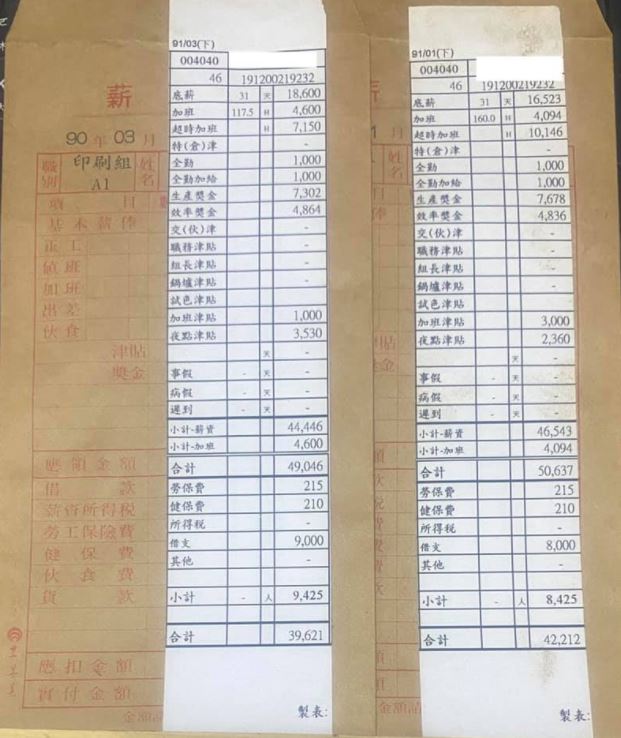 91/03(下)
004040
46 191200219232
底薪 31 天 18,600
加班 117.5 H 4,600
超時加班 H 7,150
特(倉)津 -
全勤 1,000
全勤加給 1,000
生產獎金 7,302
效率獎金 4,864
交(伙)津 -
職務津貼 -
組長津貼 -
鍋爐津貼 -
試色津貼
加班津貼 1,000
夜點津貼 3,530
天 -
事假 - 天 -
病假 - 天 -
遲到 - 天 -
小計-薪資 44,446
小計-加班 4,600
合計 49,046
勞保費 215
健保費 210
所得稅 -
借支 9,000
其他 -
小計 - 人 9,425
合計 39,621
製表:
91/01(下)
004040
46 191200219232
底薪 31 天 16,523
加班 160.0 H 4,094
超時加班 H 10,146
特(倉)津 -
全勤 1,000
全勤加給 1,000
生產獎金 7,678
效率獎金 4,836
交(伙)津 -
職務津貼 -
組長津貼 -
鍋爐津貼 -
試色津貼 -
加班津貼 3,000
夜點津貼 2,360
天 -
事假 - 天 -
病假 - 天 -
遲到 - 天 -
小計-薪資 46,543
小計-加班 4,094
合計 50,637
勞保費 215
健保費 210
所得稅 -
借支 8,000
其他 -
小計 - 人 8,425
合計 42,212
製表:
薪
90 年 03 月
職別 印刷組 A1 姓名
項 目
基本薪俸
正工
值班
加班
出差
伙食
津貼
獎金
應領金額
借款
薪資所得稅
勞工保險費
健保費
伙食費
貨款
應扣金額
實付金額
月
姓名